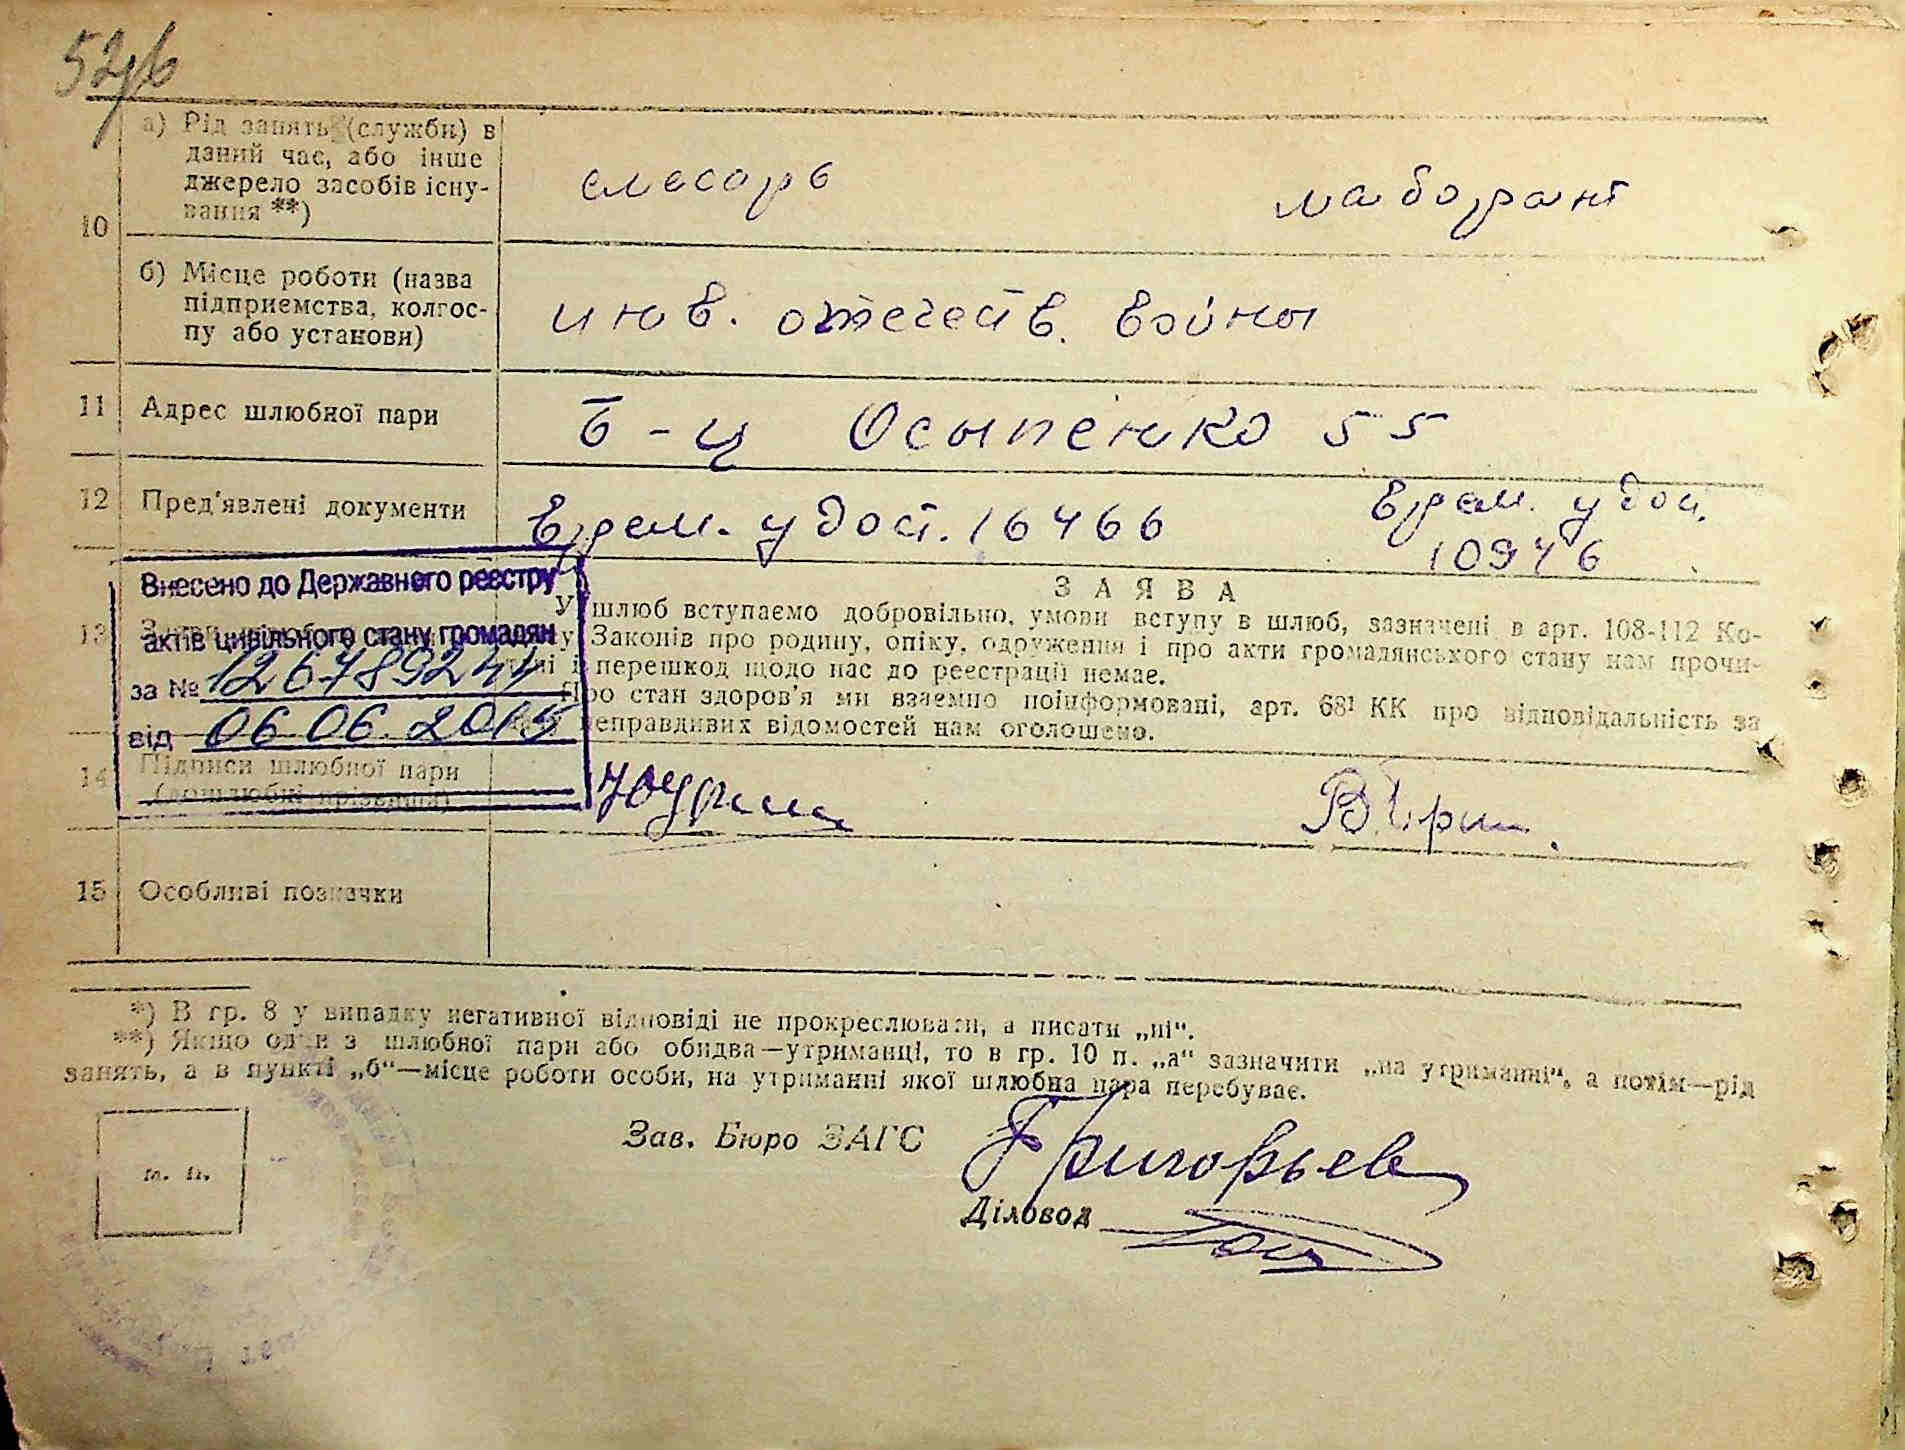 52
10
а) Рід занять (служби) в
даний час, або інше
джерело засобів існу-
вання **)
слесарь лаборант
б) Місце роботи (назва
підприємства, колгос-
пу або установи)
инв. отечеств. войны
11 Адрес шлюбної пари
Б-ц Осыпенко 55
12 Пред'явлені документи
врем. удост. 16466
врем. удост.
10976
Внесено до Державного реєстру
актів цивільного стану громадян
за № 1267892
від 06 06. 2015
13
ЗАЯВА
У шлюб вступаємо добровільно, умови вступу в шлюб, зазначені в арт. 108-112 Ко-
у Законів про родину, опіку, одруження і про акти громадянського стану нам прочи-
і перешкод щодо нас до реєстрації немає.
Про стан здоров'я ми взаємно поінформовані, арт. 68¹ КК про відповідальність за
неправдивих відомостей нам оголошено.
14 Підписи шлюбної пари
(дошлюбні прізвища)
15 Особливі позначки
*) В гр. 8 у випадку негативної відповіді не прокреслювати, а писати „ні“.
**) Якщо один з шлюбної пари або обидва—утриманці, то в гр. 10 п. „а“ зазначити „на утриманні“, а потім—рід
занять, а в пункті „б“—місце роботи особи, на утриманні якої шлюбна пара перебуває.
м. п.
Зав. Бюро ЗАГС Григорьев
Діловод